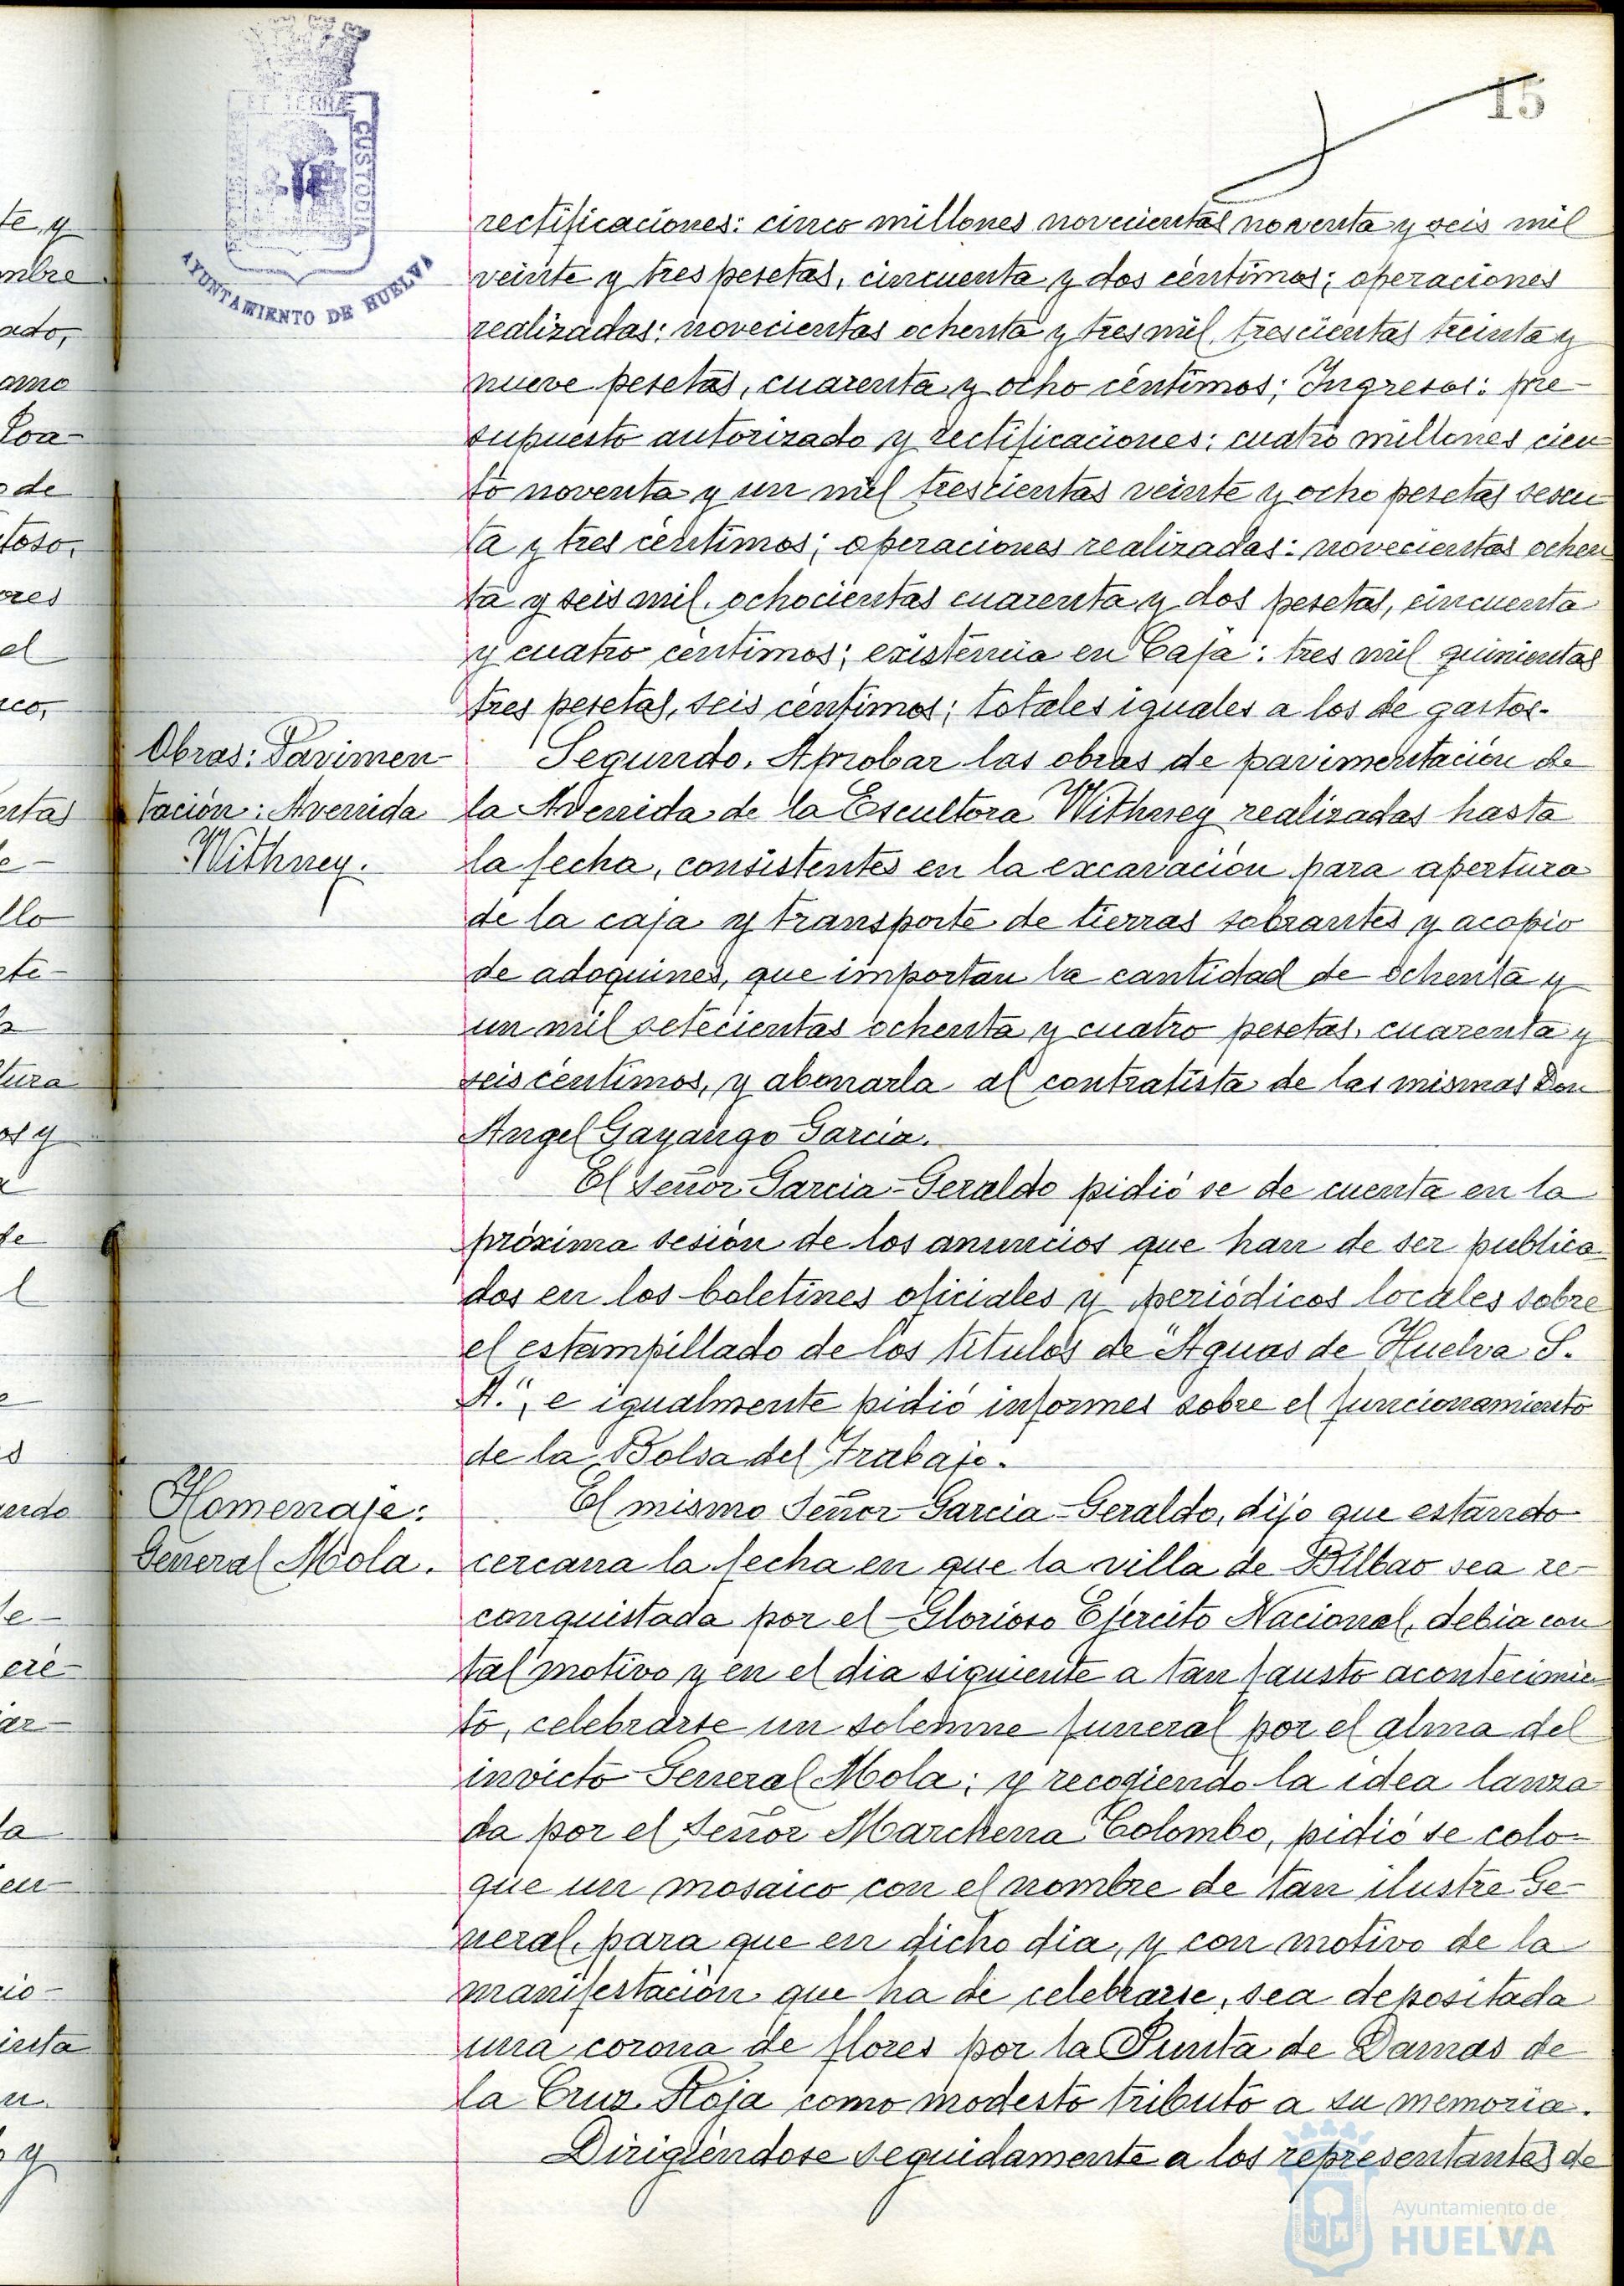 15
ET TERRÆ
CUSTODIA
AYUNTAMIENTO DE HUELVA
rectificaciones: cinco millones novecientas noventa y seis mil
veinte y tres pesetas, cincuenta y dos céntimos; operaciones
realizadas: novecientas ochenta y tres mil, trescientas treinta y
nueve pesetas, cuarenta y ocho céntimos; Ingresos: pre-
supuesto autorizado y rectificaciones: cuatro millones cien
to noventa y un mil trescientas veinte y ocho pesetas sesen
ta y tres céntimos; operaciones realizadas: novecientas ochen
ta y seis mil, ochocientas cuarenta y dos pesetas, cincuenta
y cuatro céntimos; existencia en Caja: tres mil quinientas
tres pesetas, seis céntimos; totales iguales a los de gastos.-
Obras: Pavimen-
tación: Avenida
Withney.
Segundo. Aprobar las obras de pavimentación de
la Avenida de la Escultora Withney realizadas hasta
la fecha, consistentes en la excavación para apertura
de la caja y transporte de tierras sobrantes y acopio
de adoquines, que importan la cantidad de ochenta y
un mil setecientas ochenta y cuatro pesetas, cuarenta y
seis céntimos, y abonarla al contratista de las mismas Don
Angel Gayango Garcia.
El Señor Garcia-Geraldo pidió se de cuenta en la
próxima sesión de los anuncios que han de ser publica
dos en los boletines oficiales y periódicos locales sobre
el estampillado de los títulos de "Aguas de Huelva S.
A.", e igualmente pidió informes sobre el funcionamiento
de la Bolsa del Trabajo.
Homenaje:
General Mola.
El mismo Señor Garcia-Geraldo, dijo que estando
cercana la fecha en que la villa de Bilbao sea re-
conquistada por el Glorioso Ejército Nacional, debia con
tal motivo y en el dia siguiente a tan fausto acontecimien
to, celebrarse un solemne funeral por el alma del
invicto General Mola; y recogiendo la idea lanza
da por el Señor Marchena Colombo, pidió se colo-
que un mosaico con el nombre de tan ilustre Ge-
neral, para que en dicho dia, y con motivo de la
manifestación que ha de celebrarse, sea depositada
una corona de flores por la Junta de Damas de
la Cruz Roja como modesto tributo a su memoria.
Dirigiéndose seguidamente a los representantes de
Ayuntamiento de
HUELVA